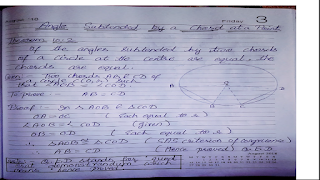 3
Angle Subtended by a Chord at a Point
Theorem 10.2
If the angles subtended by two chords
of a circle at the centre are equal, the
chords are equal.
Given: Two chords AB & CD of
a circle C(O,r) such
that ∠AOB = ∠COD
To prove - AB = CD
Proof - In △AOB & △COD
OA = OC (Each equal to r)
∠AOB = ∠COD (given)
OB = OD (Each equal to r)
∴ △AOB ≅ △COD (SAS criterion of congruence)
AB = CD (Hence proved) Q.E.D
Q.E.D stands for "Quod
erat demonstrandum" which
means hence proved